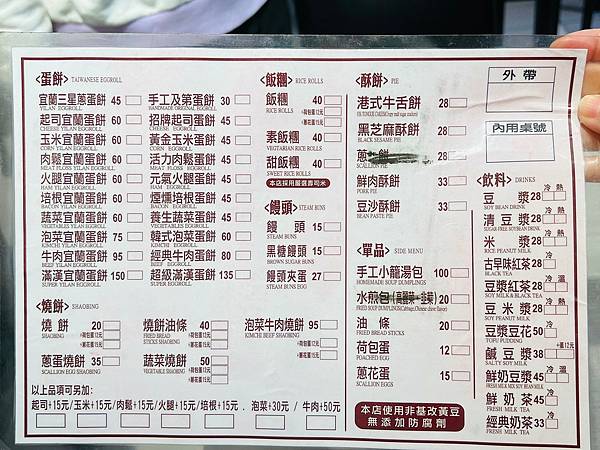 <蛋餅> TAIWANESE EGGROLL
宜蘭三星蔥蛋餅 45
YILAN EGGROLL
起司宜蘭蛋餅 60
CHEESE YILAN EGGROLL
玉米宜蘭蛋餅 60
CORN YILAN EGGROLL
肉鬆宜蘭蛋餅 60
MEAT FLOSS YILAN EGGROLL
火腿宜蘭蛋餅 60
HAM YILAN EGGROLL
培根宜蘭蛋餅 60
BACON YILAN EGGROLL
蔬菜宜蘭蛋餅 60
VEGETABLES YILAN EGGROLL
泡菜宜蘭蛋餅 75
KIMCHI YILAN EGGROLL
牛肉宜蘭蛋餅 95
BEEF YILAN EGGROLL
滿漢宜蘭蛋餅 150
SUPER YILAN EGGROLL
手工及第蛋餅 30
HANDMADE ORIGINAL EGGROLL
招牌起司蛋餅 45
CHEESE EGGROLL
黃金玉米蛋餅 45
CORN EGGROLL
活力肉鬆蛋餅 45
MEAT FLOSS EGGROLL
元氣火腿蛋餅 45
HAM EGGROLL
煙燻培根蛋餅 45
BACON EGGROLL
養生蔬菜蛋餅 45
VEGETABLES EGGROLL
韓式泡菜蛋餅 60
KIMCHI EGGROLL
經典牛肉蛋餅 80
BEEF EGGROLL
超級滿漢蛋餅 135
SUPER EGGROLL
<燒餅> SHAOBING
燒餅 20
SHAOBING
+荷包蛋12元
+蔥花蛋15元
蔥蛋燒餅 35
SCALLION EGG SHAOBING
燒餅油條 40
FRIED BREAD STICKS SHAOBING
+荷包蛋12元
+蔥花蛋15元
蔬菜燒餅 50
VEGETABLE SHAOBING
+荷包蛋12元
+蔥花蛋15元
泡菜牛肉燒餅 95
KIMCHI BEEF SHAOBING
+荷包蛋12元
+蔥花蛋15元
以上品項可另加:
起司+15元/玉米+15元/肉鬆+15元/火腿+15元/培根+15元 . 泡菜+30元 / 牛肉+50元
<飯糰> RICE ROLLS
飯糰 40
RICE ROLLS
+荷包蛋12元
+蔥花蛋15元
素飯糰 40
VEGTARIAN RICE ROLLS
甜飯糰 40
SWEET RICE ROLLS
本店採用嚴選壽司米
<饅頭> STEAM BUNS
饅頭 15
STEAM BUNS
黑糖饅頭 15
BROWN SUGAR BUNS
饅頭夾蛋 27
STEAM BUNS EGG
<酥餅> PIE
港式牛舌餅 28
黑芝麻酥餅 28
BLACK SESAME PIE
蔥 餅 28
SCALLION PIE
鮮肉酥餅 33
PORK PIE
豆沙酥餅 33
BEAN PASTE PIE
<單品> SIDE MENU
手工小籠湯包 100
HOMEMADE SOUP DUMPLINGS
水煎包(高麗菜・韭菜) 20
FRIED SOUP DUMPLINGS(Cabbage,Chinese chive flavor)
油條 20
FRIED BREAD STICKS
荷包蛋 12
POACHED EGG
蔥花蛋 15
SCALLION EGGS
本店使用非基改黃豆
無添加防腐劑
外帶
內用桌號
<飲料> DRINKS
冷 熱
豆漿 28
SOY BEAN DRINK
冷 熱
清豆漿 28
SUGAR-FREE SOYBEAN DRINK
冷 熱
米漿 28
RICE PEANUT MILK
冷 熱
古早味紅茶 28
BLACK TEA
冷 溫
豆漿紅茶 28
SOY MILK & BLACK TEA
冷 溫
豆米漿 28
SOY PEANUT MILK
冷 熱
豆漿豆花 50
TOFU PUDDING
冷
鹹豆漿 38
SALTY SOY MILK
+蛋12元
鮮奶豆漿 45
FRESH MILK MIX SOY BEAN MILK
冷 溫
鮮奶茶 45
FRESH MILK TEA
冷 溫
經典奶茶 33
FRESH MILK TEA
冷